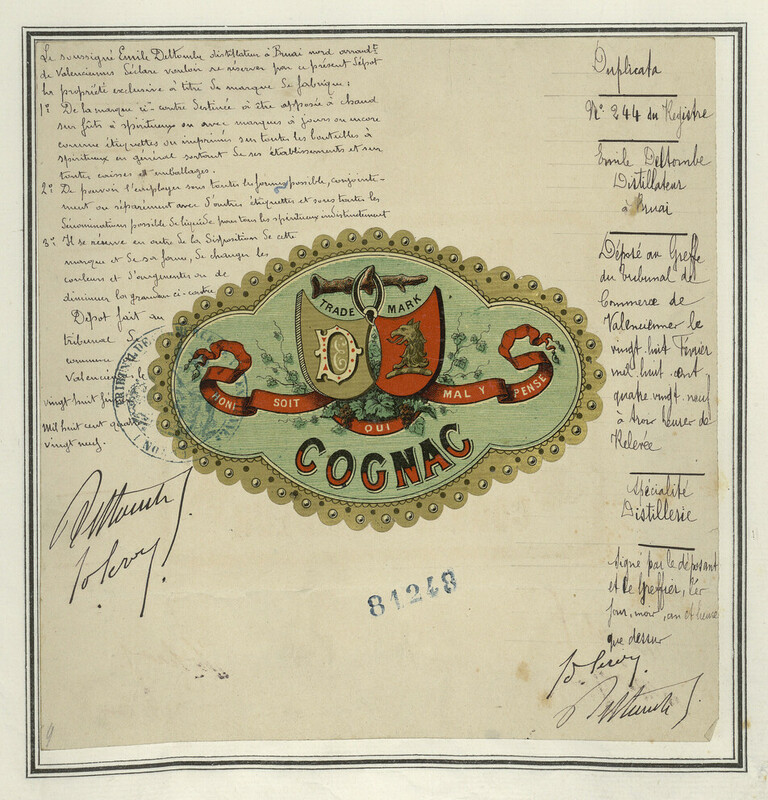 Le soussigné Emile Deltombe distillateur à Bruai nord arrondt.
de Valenciennes déclare vouloir se réserver par ce présent dépôt
la propriété exclusive à titre de marque de fabrique:
1º De la marque "ci" contre destinée à être apposée à chaud
sur fûts à spiritueux ou avec marques à jours ou encore
comme étiquettes ou imprimés sur toutes les bouteilles à
spiritueux en général sortant de ses établissements et sur
toutes caisses et emballages.
2º De pouvoir l'employer sous toutes les formes possible, conjointe-
ment ou séparément avec d'autres étiquettes et sous toutes les
dénominations possible de liquide pour tous les spiritueux indistinctement
3º Il se réserve en outre de la disposition de cette
marque et de sa forme, de changer les
couleurs et d'augmenter ou de
diminuer les grandeurs ci-contre
Dépôt fait au
tribunal de
commerce
Valenciennes le
vingt huit
mil huit cent quatre
vingt neuf.
TRIBUNAL DE
TRADE MARK
D C
HONI SOIT QUI MAL Y PENSE
COGNAC
81248
Duplicata
Nº 244 du Registre
Emile Deltombe
Distillateur
à Bruai
Déposé au Greffe
du Tribunal de
Commerce de
Valenciennes le
vingt huit Février
mil huit cent
quatre vingt neuf
à trois heures de
Relevée
Spécialité
Distillerie
Signé par le déposant
et le Greffier, les
jour, mois, an et heure
que dessus